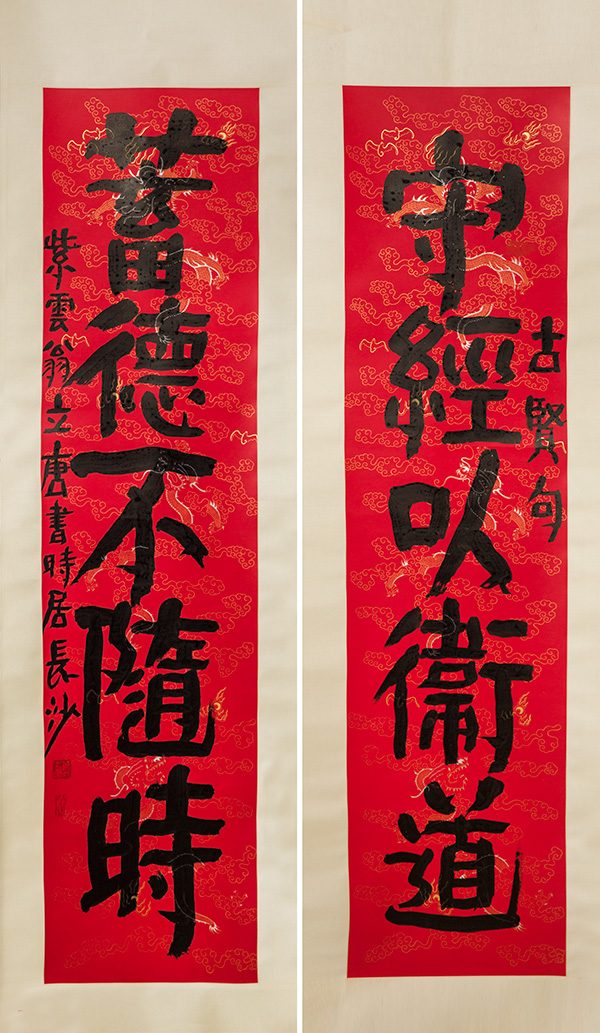 古賢句
守經以衛道
蓄德不隨時
紫雲翁立唐書時居長沙